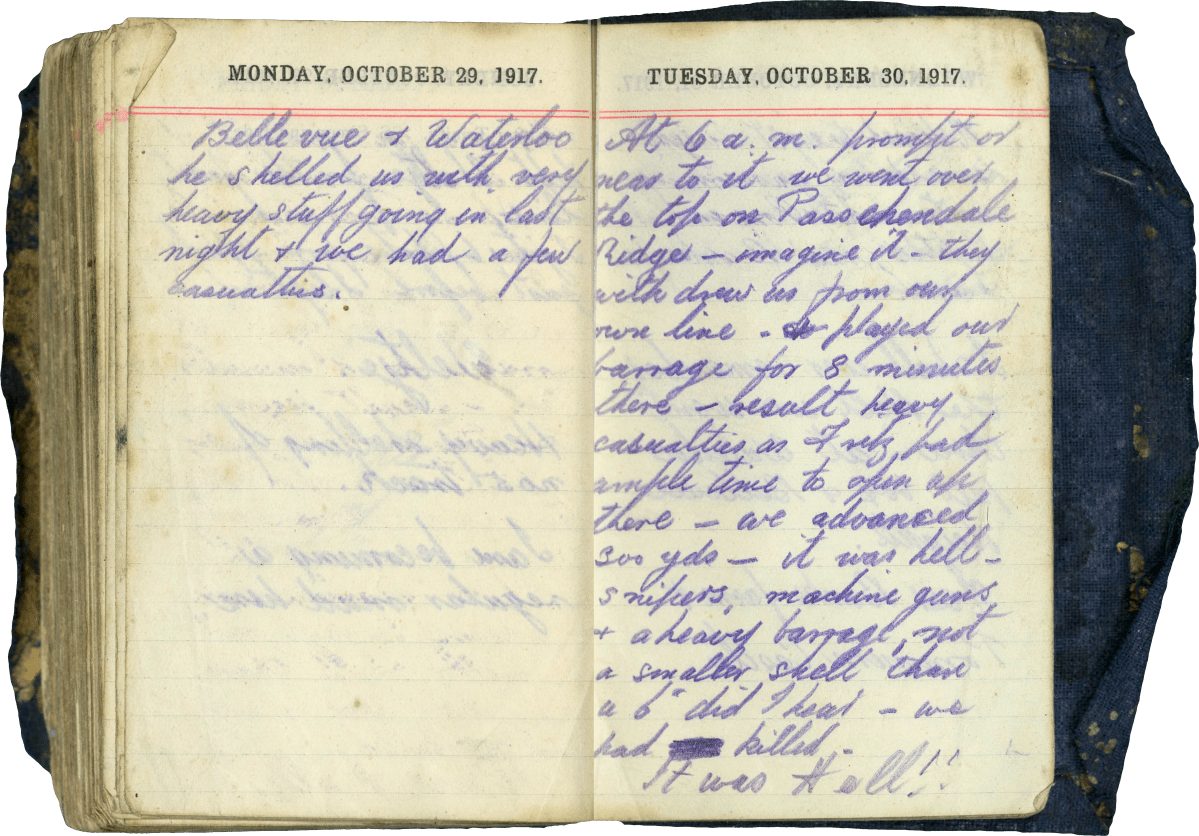 MONDAY, OCTOBER 29, 1917.
Bellevue + Waterloo
he shelled us with very
heavy stuff going in last
night + we had a few
casualties.
TUESDAY, OCTOBER 30, 1917.
At 6 a.m. prompt or
near to it we went over
the top on Passchendale
Ridge - imagine it - they
with drew us from our
own line - played our
barrage for 8 minutes
there - result heavy
casualties as Fritz had
ample time to open up
there - we advanced
300 yds - it was hell -
snipers, machine guns,
+ a heavy barrage, not
a smaller shell than
a 6" did I hear - we
had killed -
It was Hell!!